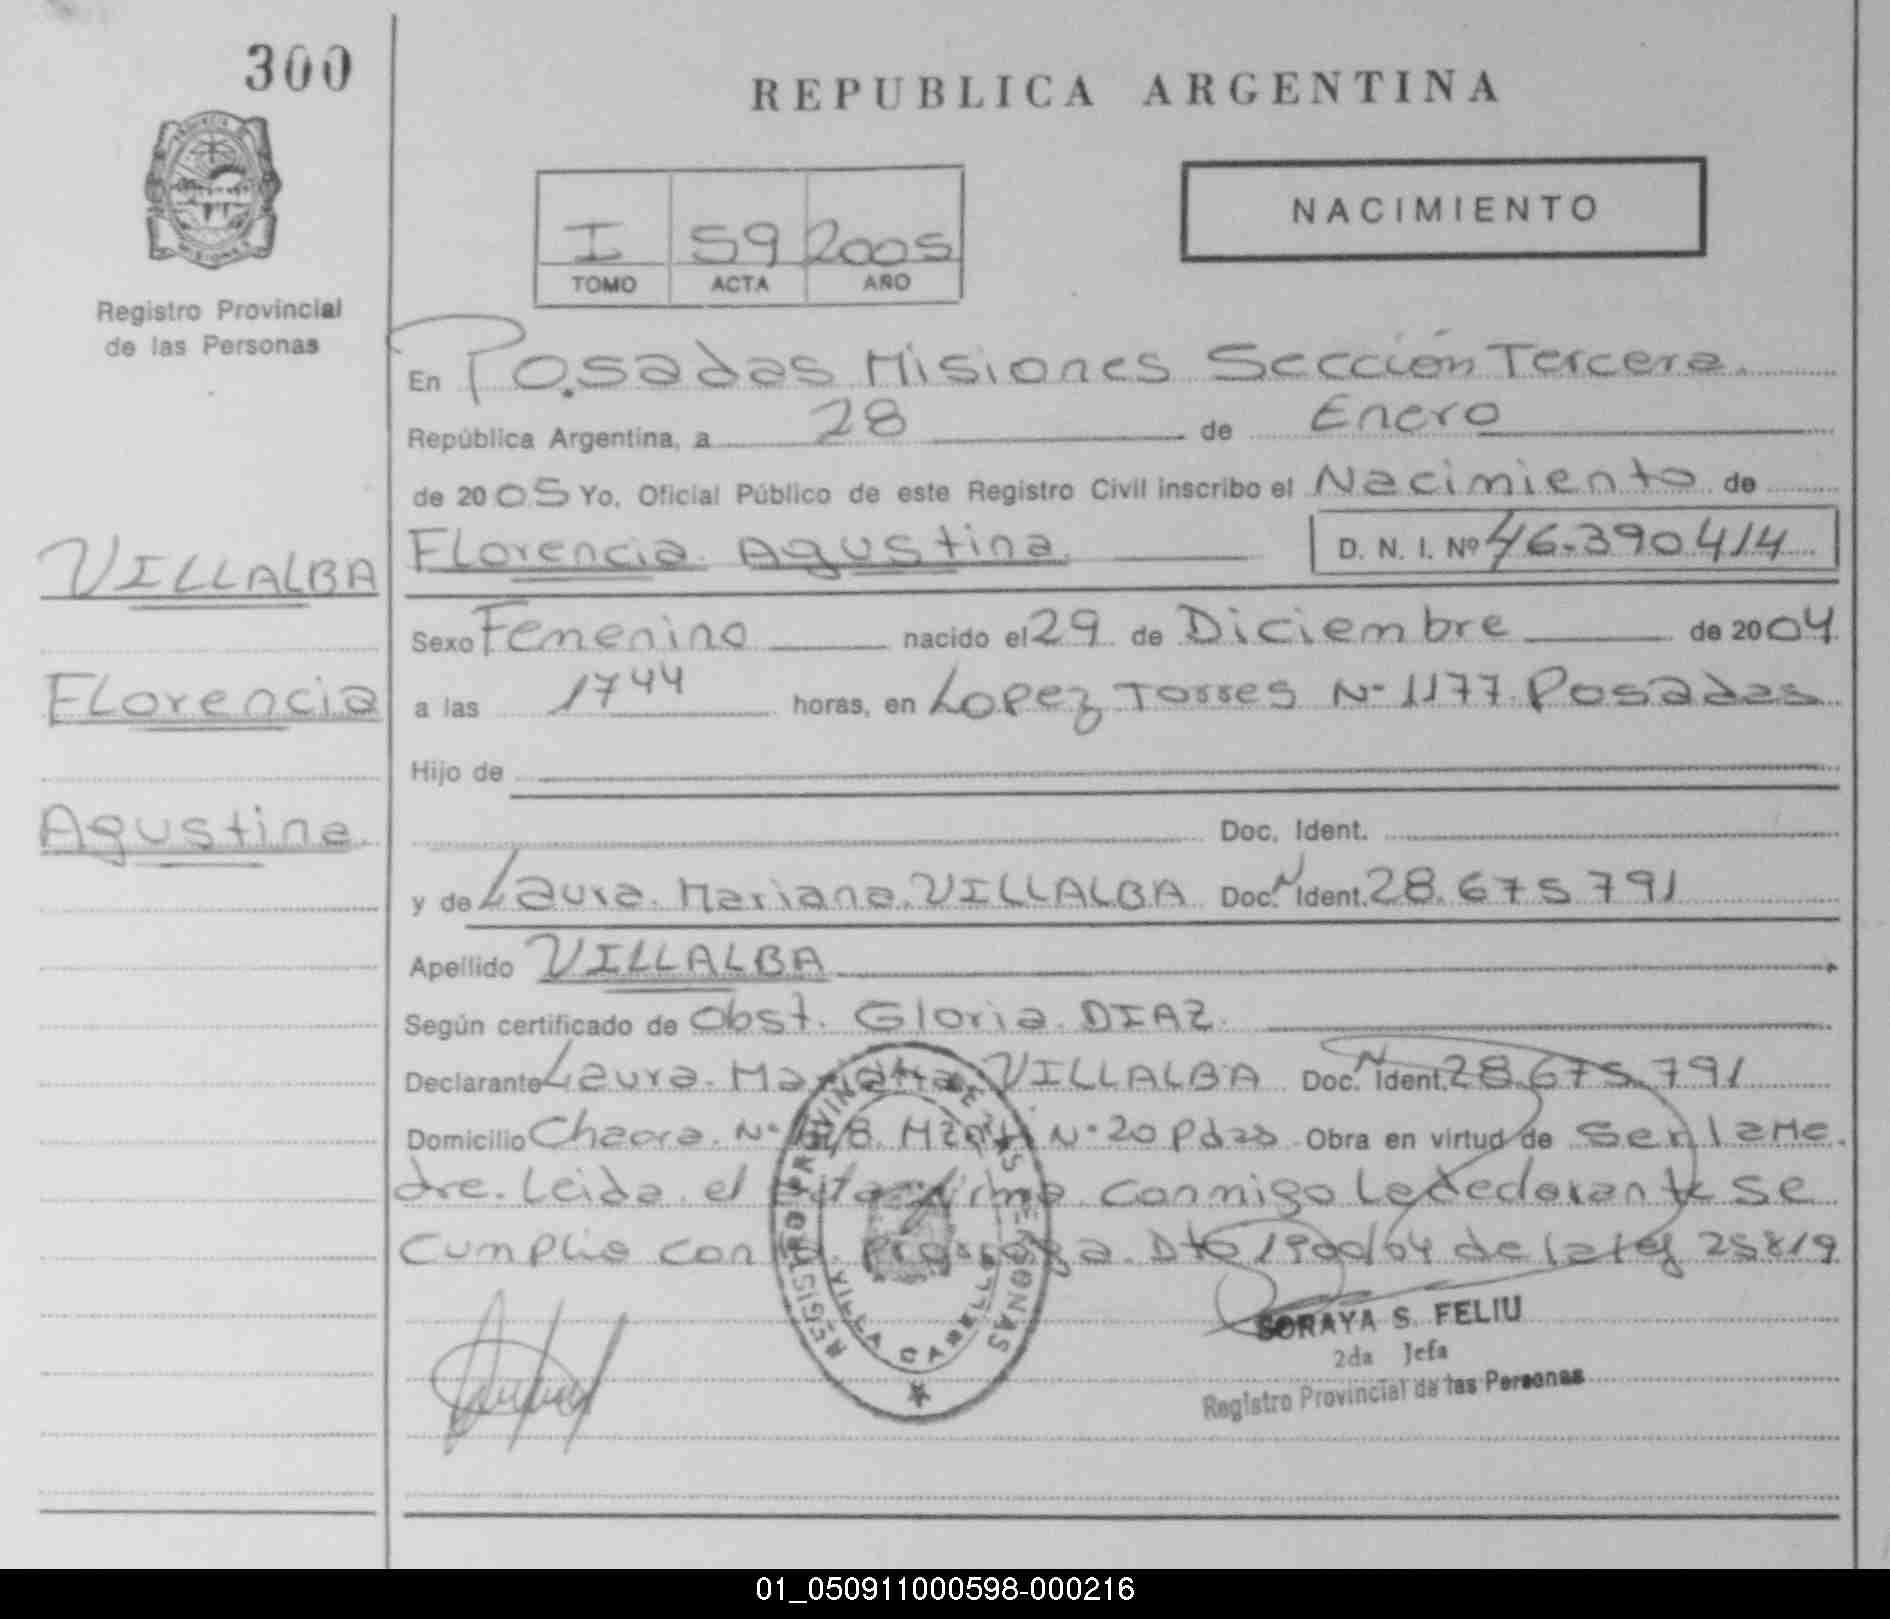 300
REPUBLICA ARGENTINA
NACIMIENTO
I 59 2005
TOMO ACTA AÑO
Registro Provincial
de las Personas
En Posadas Misiones Sección Tercera.
República Argentina, a 28 de Enero
de 2005 Yo, Oficial Público de este Registro Civil inscribo el Nacimiento de
Florencia Agustina D. N. I. Nº 46.390.414
VILLALBA
Florencia
Agustina
Sexo Femenino nacido el 29 de Diciembre de 2004
a las 17 44 horas, en Lopez Torres Nº 1177 Posadas
Hijo de
Doc. Ident.
y de Laura Mariana VILLALBA Doc. N Ident. 28.675.791
Apellido VILLALBA
Según certificado de Obst. Gloria DIAZ
Declarante Laura Mariana VILLALBA Doc. N Ident. 28.675.791
Domicilio Chacra Nº Nº 20 Pdas Obra en virtud de ser la Ma
dre. Leida el acta firma conmigo la declarante se
cumplio con Dto 1900/04 de la ley 25819
REGISTRO PROVINCIAL DE LAS PERSONAS
VILLA CABELLO
SORAYA S. FELIU
2da Jefa
Registro Provincial de las Personas
01_050911000598-000216